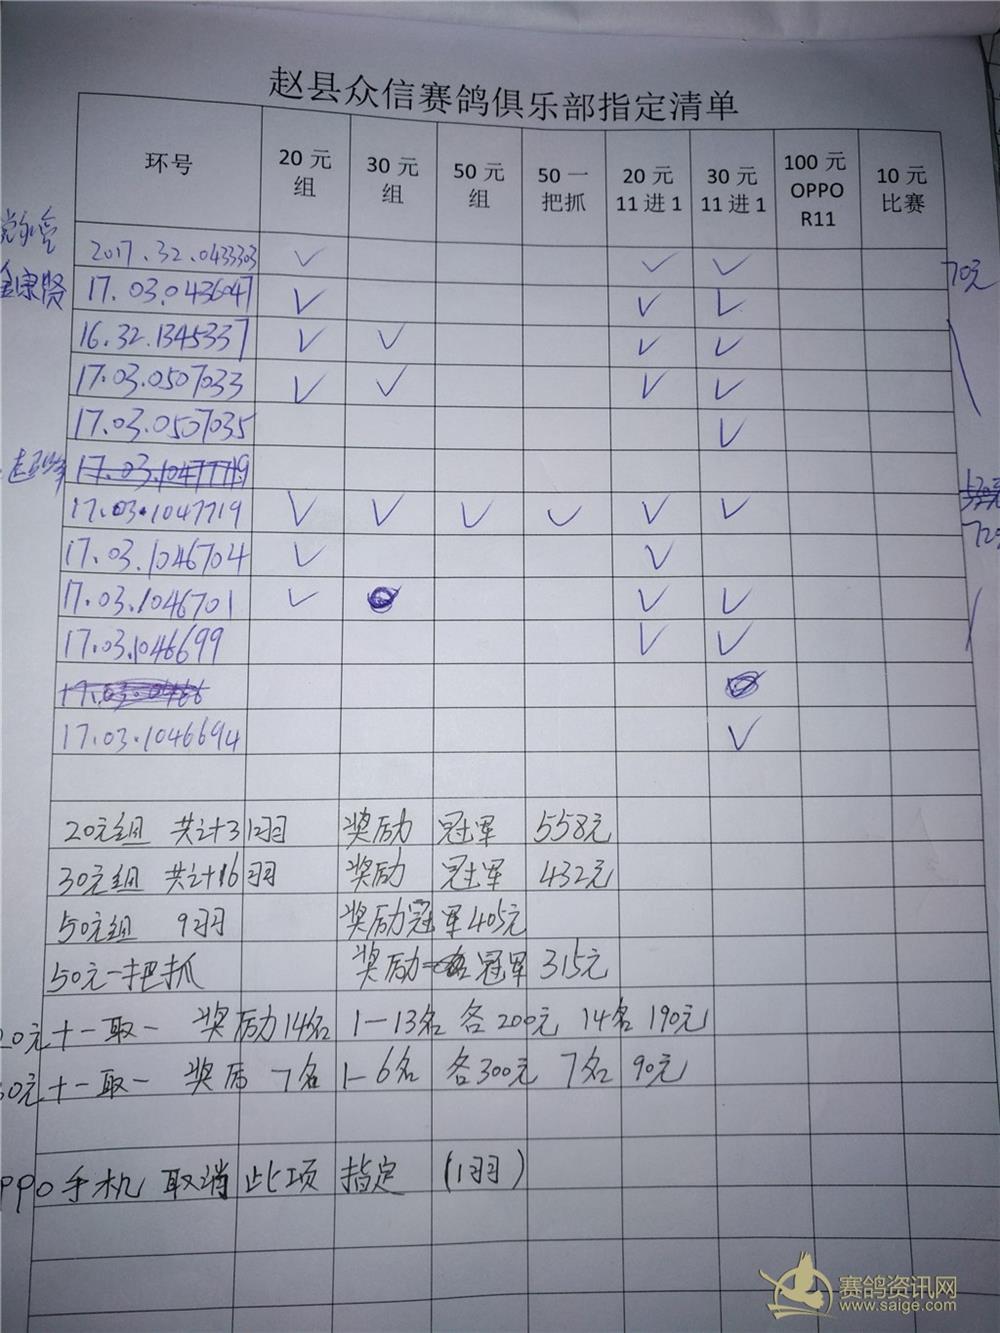 赵县众信赛鸽俱乐部指定清单
环号 20元组 30元组 50元组 50一把抓 20元11进1 30元11进1 100元OPPO R11 10元比赛
2017.32.0433303 ✓ ✓ ✓ 70元
17.03.0436047 ✓ ✓ ✓
16.32.1345337 ✓ ✓ ✓ ✓
17.03.0507033 ✓ ✓ ✓ ✓
17.03.0507035 ✓
17.03.1047719 ✓ ✓ ✓ ✓ ✓ ✓
17.03.1046704 ✓ ✓
17.03.1046701 ✓ ✓ ✓
17.03.1046699 ✓ ✓
17.03.1046694 ✓
20元组 共计31羽 奖励 冠军 558元
30元组 共计16羽 奖励 冠军 432元
50元组 9羽 奖励冠军405元
50元一把抓 奖励 冠军 315元
20元十一取一 奖励14名 1-13名 各200元 14名 190元
30元十一取一 奖励 7名 1-6名 各300元 7名 90元
PPO手机 取消此项 指定 (1羽)
赛鸽资讯网
www.saige.com